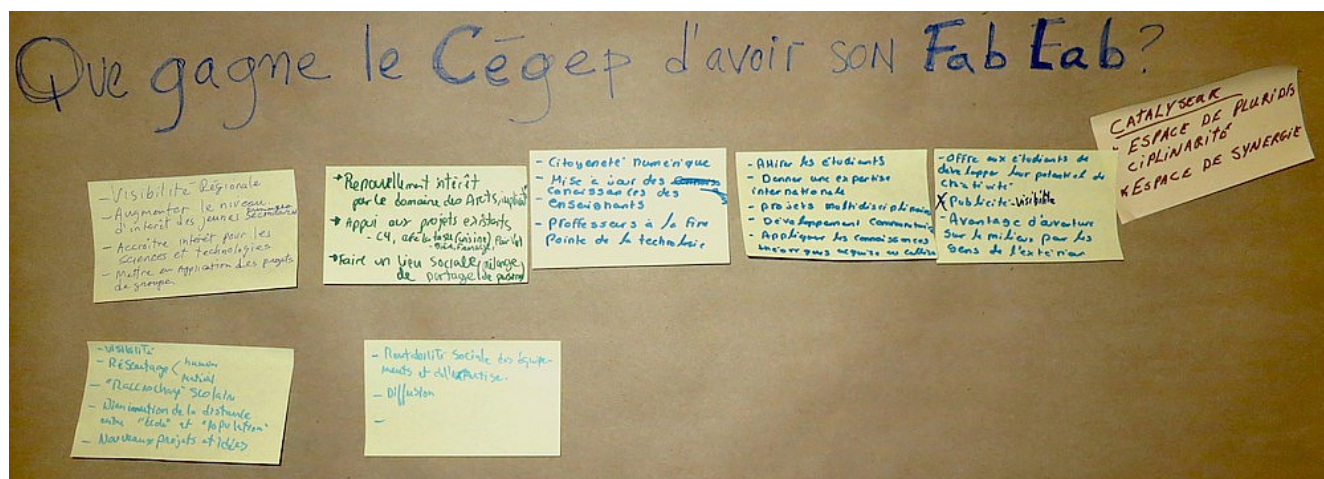 Que gagne le Cégep d'avoir son Fab Lab?
CATALYSEUR
- ESPACE DE PLURIDIS
CIPLINARITÉ
* ESPACE DE SYNERGIE
- Visibilité Régionale
- Augmenter le niveau
d'intérêt des jeunes
- Accroître intérêt pour les
sciences et technologies
- Mettre en Application des projets
de groupe
→ Renouvellement intérêt
par le domaine des Arts,
→ Appui aux projets existants
→ Faire un lieu sociale
de partage
- Citoyeneté numérique
- Mise à jour des
conaissances des
enseignants
- Proffesseurs à la fine
pointe de la technologie
- Attirer les étudiants
- Donner une expertise
internationale
- projets multidisciplinaires
- Développement communautaire
- Appliquer les connaissances
théoriques acquise au
- Offre aux étudiants de
développer leur potentiel de
créativité
X Publicité - visibilité
- Avantage d'ouverture
sur le milieu par les
gens de l'extérieur
- Visibilité
- Réseautage ( humain
- "Raccrochage" scolaire
- Diminution de la distance
entre "école" et "population"
- Nouveaux projets et idées
- Rentabilité sociale des équipe-
ments et de l'expertise.
- Diffusion
-